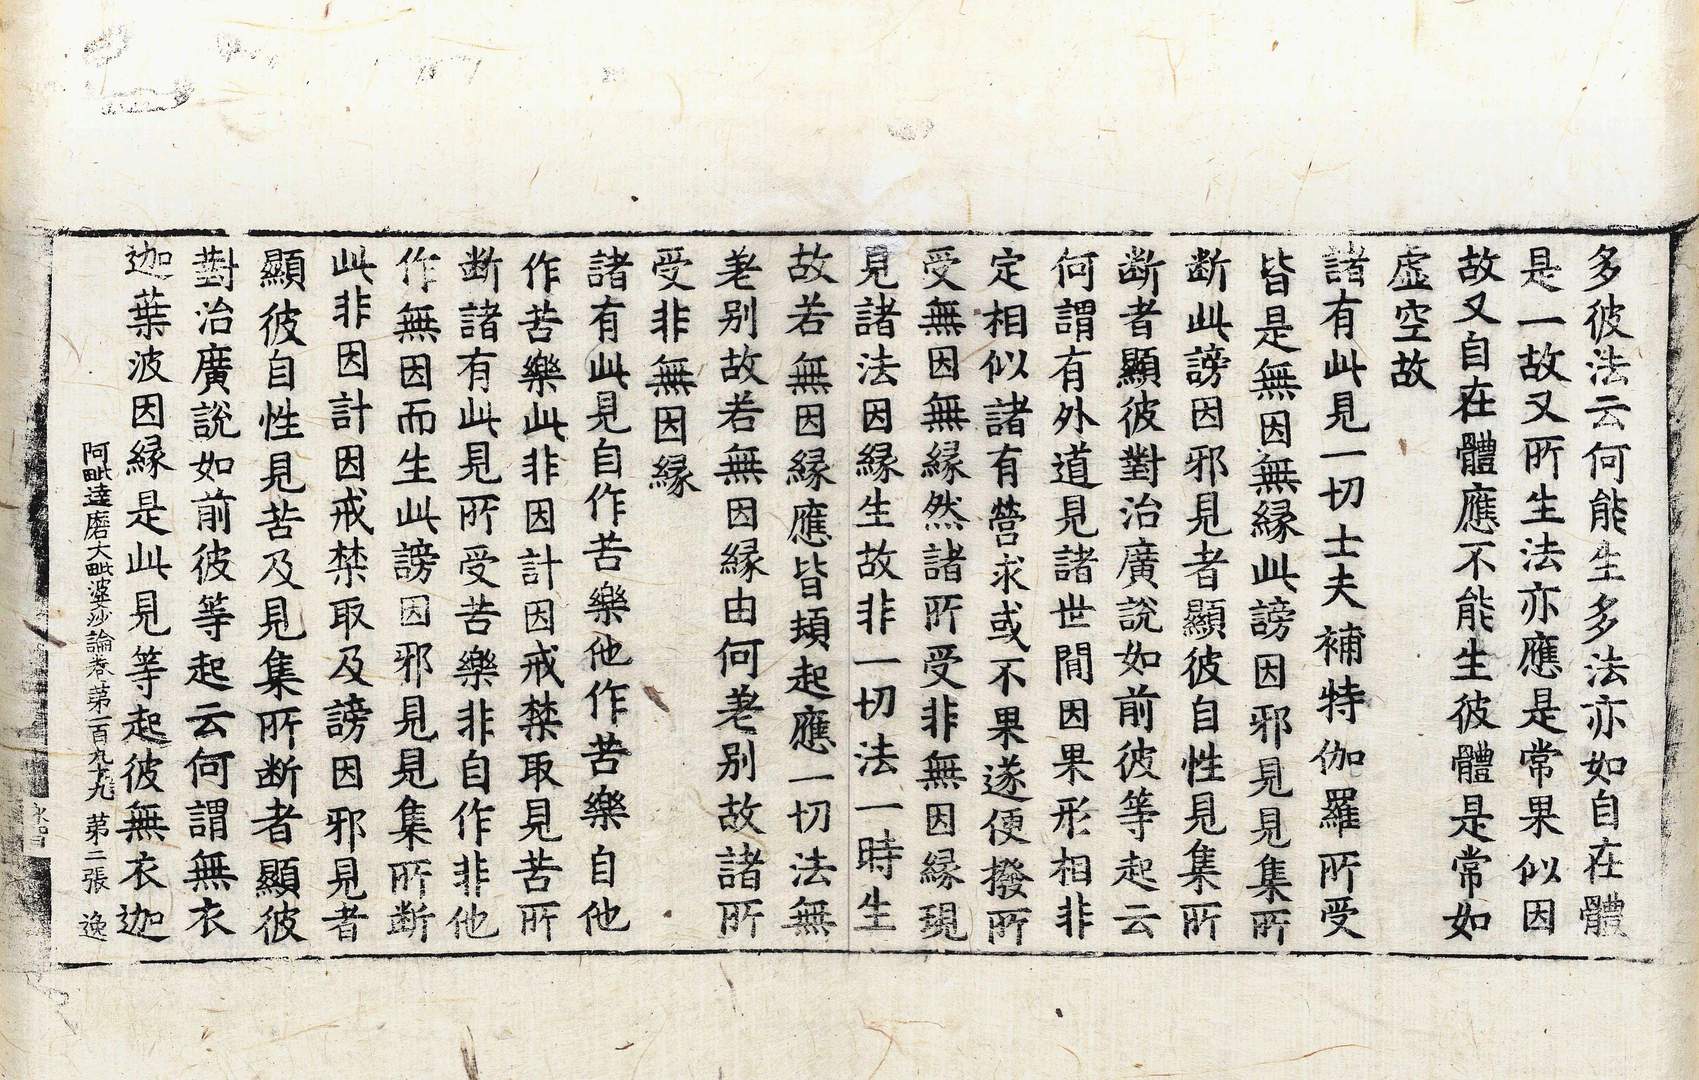 多彼法云何能生多法亦如自在體
是一故又所生法亦應是常果似因
故又自在體應不能生彼體是常如
虛空故
諸有此見一切士夫補特伽羅所受
皆是無因無緣此謗因邪見見集所
斷此謗因邪見者顯彼自性見集所
斷者顯彼對治廣說如前彼等起云
何謂有外道見諸世間因果形相非
定相似諸有營求或不果遂便撥所
受無因無緣然諸所受非無因緣現
見諸法因緣生故非一切法一時生
故若無因緣應皆頓起應一切法無
差別故若無因緣由何差別故諸所
受非無因緣
諸有此見自作苦樂他作苦樂自他
作苦樂此非因計因戒禁取見苦所
斷諸有此見所受苦樂非自作非他
作無因而生此謗因邪見見集所斷
此非因計因戒禁取及謗因邪見者
顯彼自性見苦及見集所斷者顯彼
對治廣說如前彼等起云何謂無衣
迦葉波因緣是此見等起彼無衣迦
阿毗達磨大毗婆沙論卷第一百九十九 第二張 逸